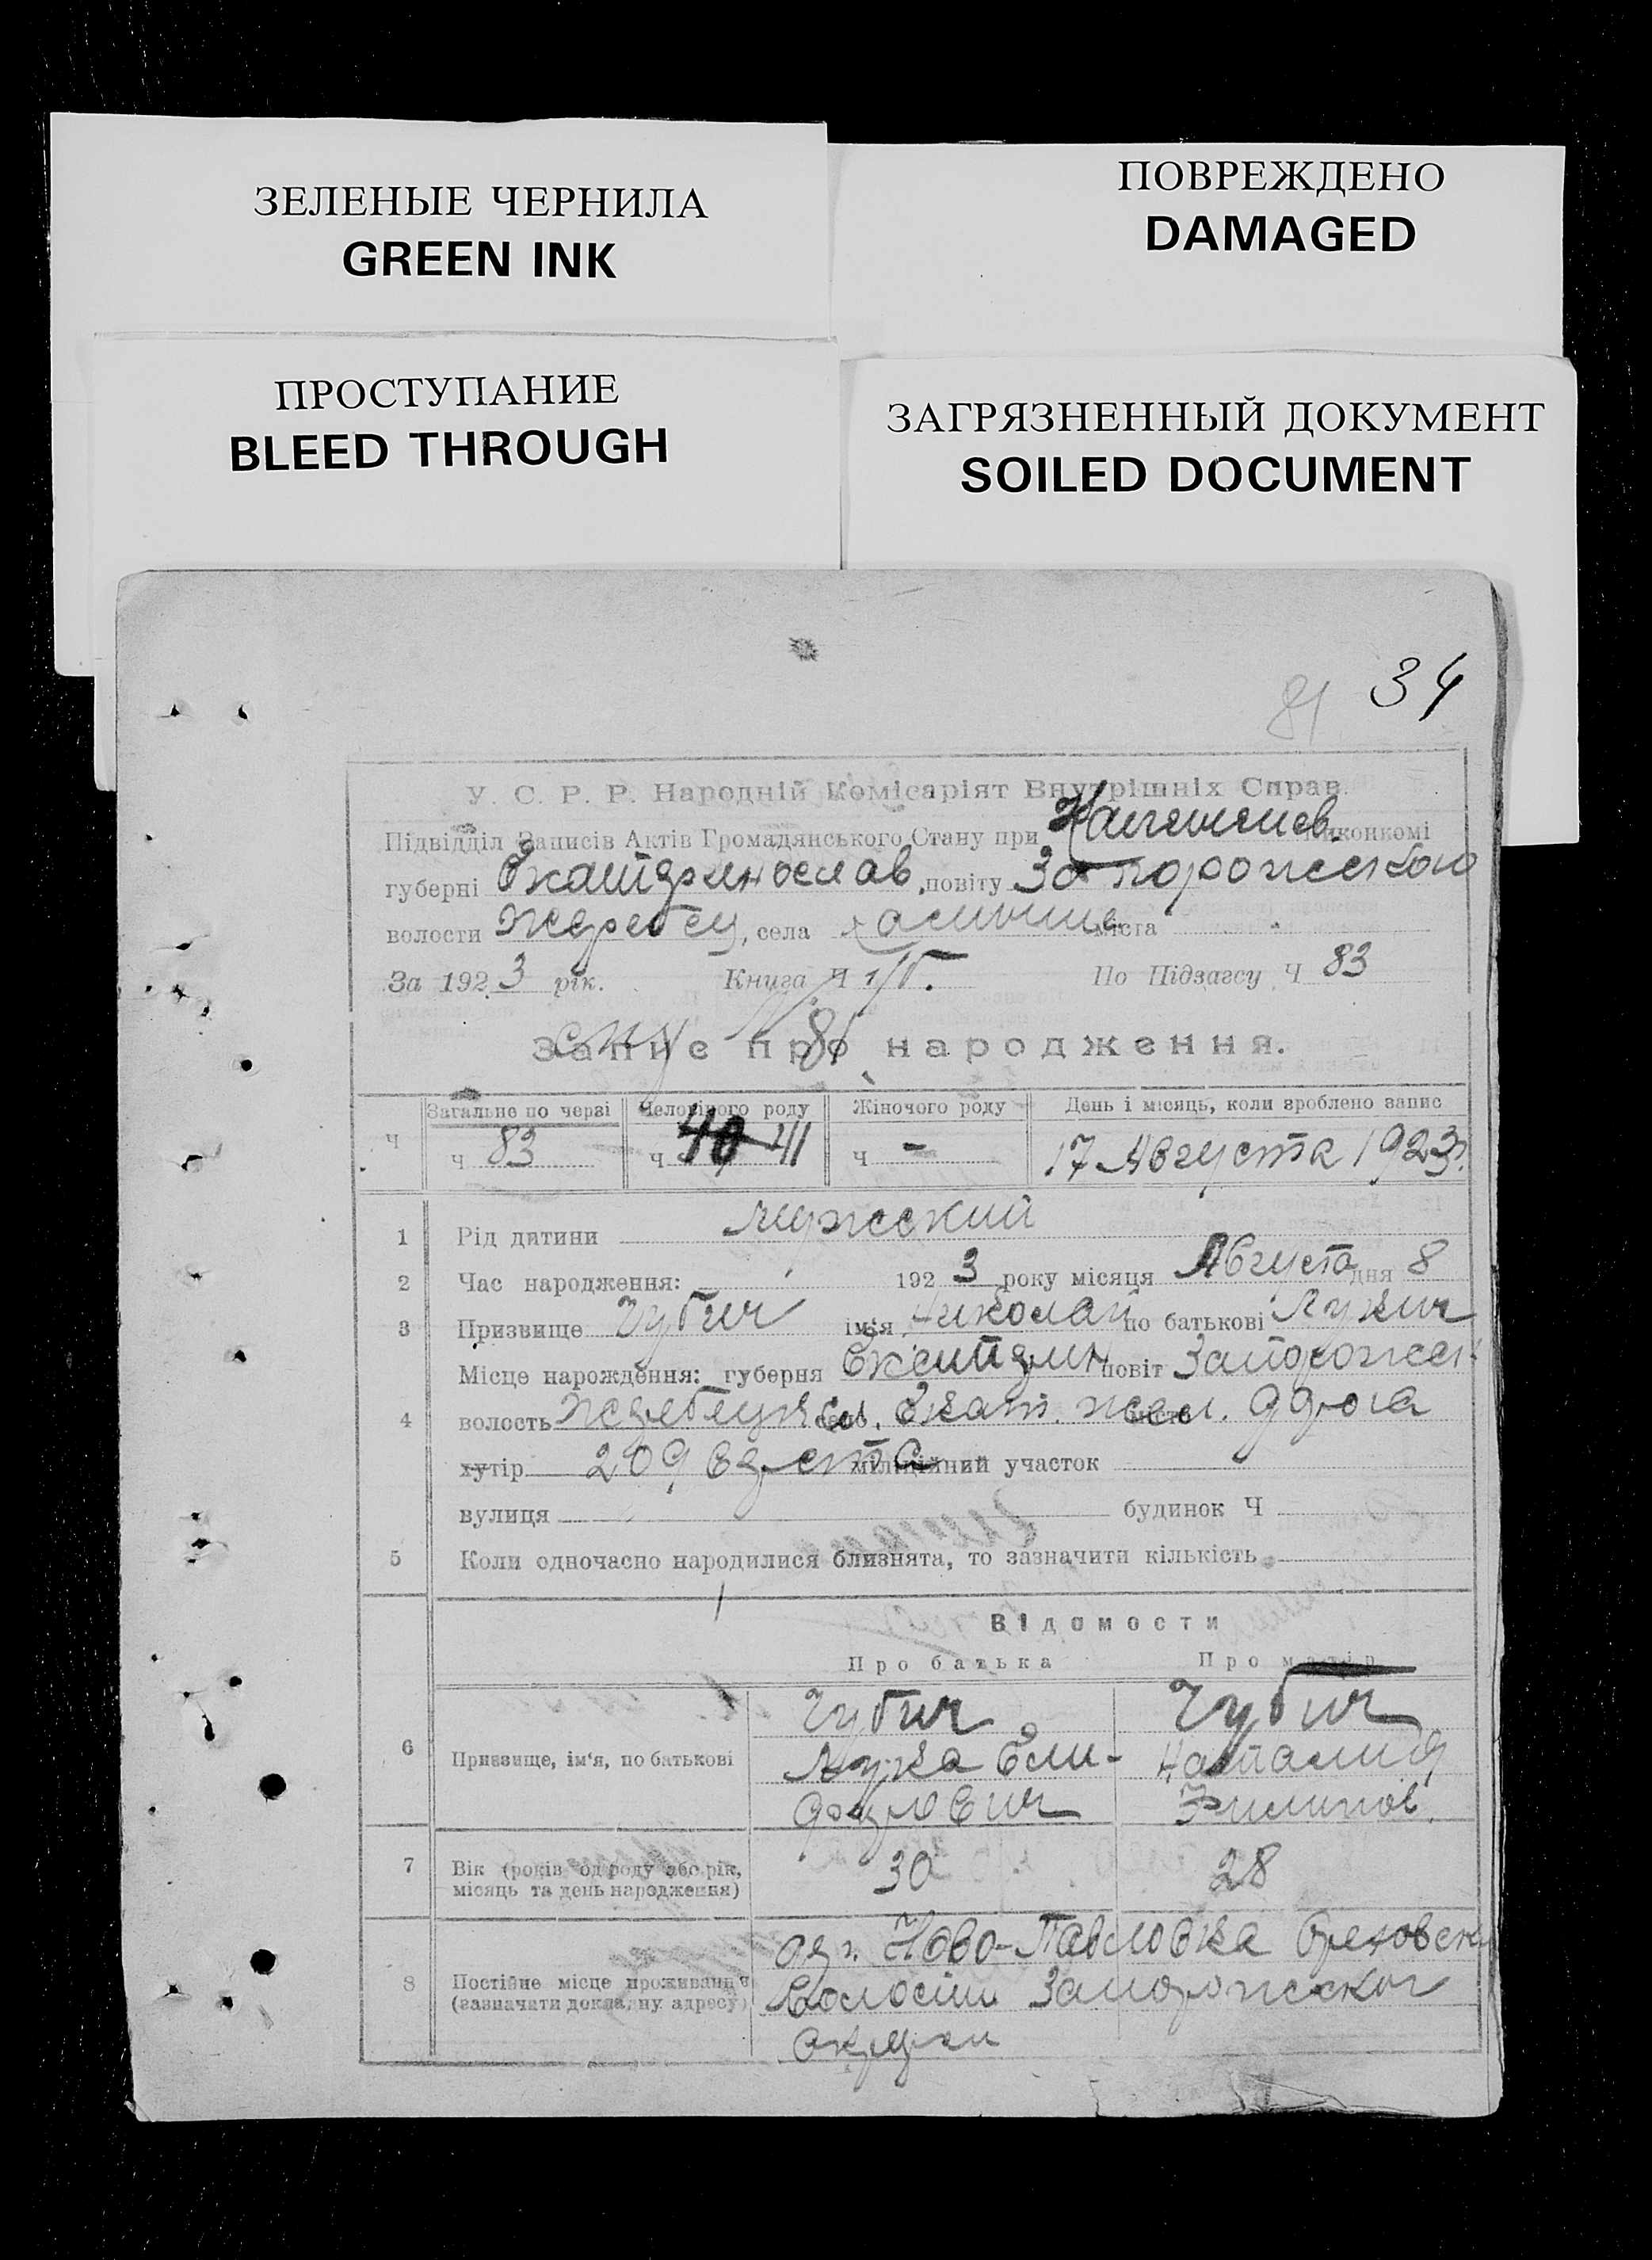 ЗЕЛЕНЫЕ ЧЕРНИЛА
GREEN INK
ПОВРЕЖДЕНО
DAMAGED
ПРОСТУПАНИЕ
BLEED THROUGH
ЗАГРЯЗНЕННЫЙ ДОКУМЕНТ
SOILED DOCUMENT
81 34
У. С. Р. Р. Народній Комісаріят Внутрішніх Справ.
Підвідділ Записів Актів Громадянського Стану при виконкомі
губерні Екатеринослав, повіту Запорожского
волости Жеребец, села міста
За 1923 рік. Книга Ч По Підзагсу Ч 83
81
Запис про народження.
Загальне по черзі Чоловічого роду Жіночого роду День і місяць, коли зроблено запис
Ч Ч 83 Ч 40 41 Ч - 17 Августа 1923 г.
1 Рід дитини мужеский
2 Час народження: 1923 року місяця Августа дня 8
3 Призвище Чубич ім'я Николай по батькові Лукич
Місце нарождення: губерня Екатерин повіт Запорожск
4 волость Жеребецкая село Екат. жел. дорога
хутір 209 верста міліційний участок
вулиця будинок Ч
5 Коли одночасно народилися близнята, то зазначити кількість
Відомости
Про батька Про матір
Чубич Чубич
6 Призвище, ім'я, по батькові Лука Ели- Наталия
Филипов.
7 Вік (років од роду або рік, 30 28
місяць та день народження)
Ново-Павловка Ореховск
8 Постійне місце проживання
(зазначити докладну адресу) волости Запорожской
округи